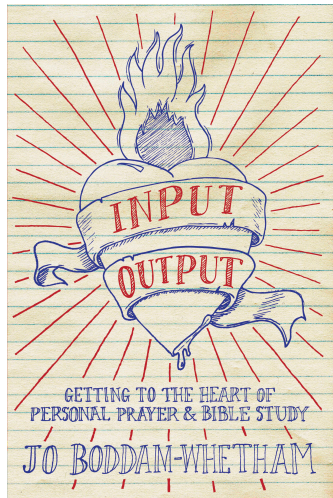 INPUT
OUTPUT
GETTING TO THE HEART OF
PERSONAL PRAYER & BIBLE STUDY
JO BODDAM-WHETHAM